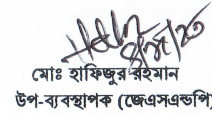 মোঃ হাফিজুর রহমান
উপ-ব্যবস্থাপক (জেএসএন্ডপি)